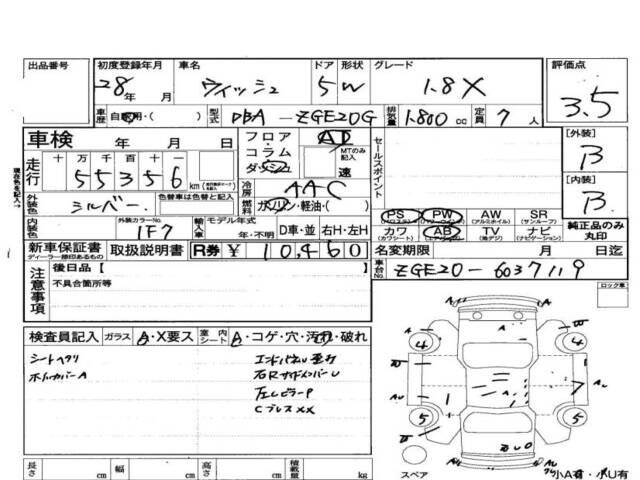 出品番号 初度登録年月 車名 ドア 形状 グレード 評価点
28年 月 ウィッシュ 5 W 1.8X 3.5
車歴 自家用・( ) 型式 DBA-ZGE20G 排気量 1800cc 定員 7人
車検 年 月 日 フロア・コラム・ダッシュ AT MTのみ記入 速
セールスポイント
[外装] B
[内装] B
走行 十 万 千 百 十 一
55356 km
冷房 AAC
外装色 シルバー 色替車は色替と記入 燃料 ガソリン・軽油・( )
内装色 外装カラーNo. 1F7 輸入車 モデル年式 年・不明 D車・並 右H・左H
PS (パワステ) PW (パワーウィンドウ) AW (アルミホイル) SR (サンルーフ)
カワ (カワシート) AB (エアバッグ) TV (地デジ) ナビ (ナビゲーション)
純正品のみ丸印
新車保証書 ディーラー捺印あるもの 取扱説明書 R券 ¥10,460
名変期限 月 日迄
車台No. ZGE20-6037119
現在色を記入→
注意事項 後日品【
不具合箇所等
ロック車
検査員記入 ガラス A・X要ス 室内シート A・コゲ・穴・汚れ・破れ
シートヘタリ
ホイルカバーA
Cプレス XX
4 4
5 5
A
長さ cm 幅 cm 高さ cm 積載量 kg
スペア 小A有・小U有